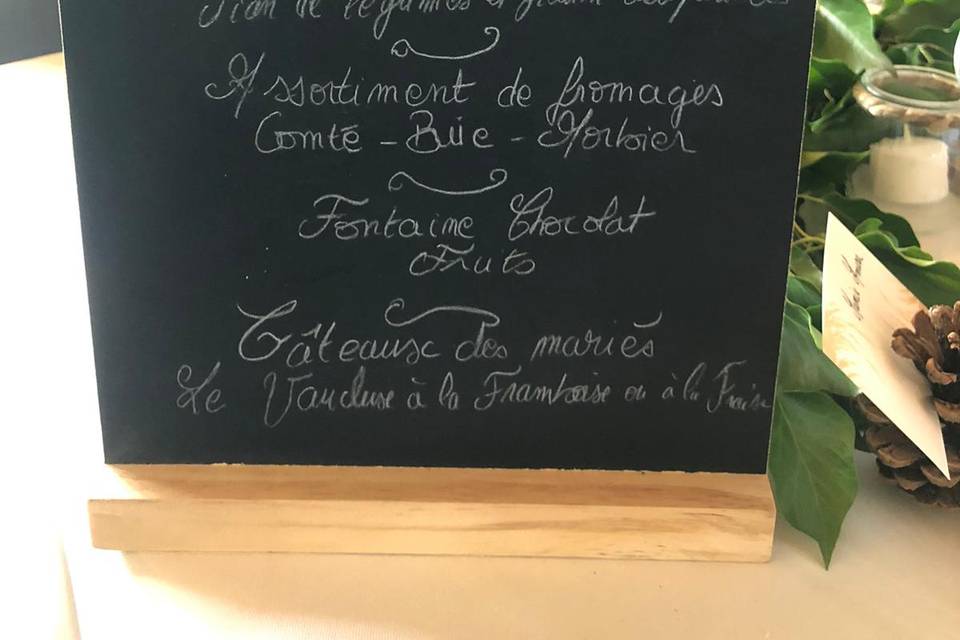 de légumes
Assortiment de fromages
Comté - Brie - Morbier
Fontaine Chocolat
Fruits
Gâteaux des mariés
Le Vaucluse à la Framboise ou à la Fraise